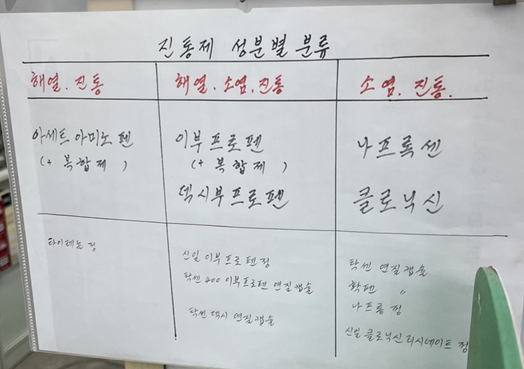 진통제 성분별 분류
해열.진통
해열.소염.진통
소염.진통.
아세트아미노펜
(+ 복합제 )
이부프로펜
(+ 복합제 )
덱시부프로펜
나프록센
클로닉신
타이레놀 정
신일 이부프로펜정
탁센 400 이부프로펜 연질캡슐
탁센 덱시 연질캡슐
탁센 연질캡슐
확펜 〃
나프롱 정
신일 클로닉신리시네이트 정